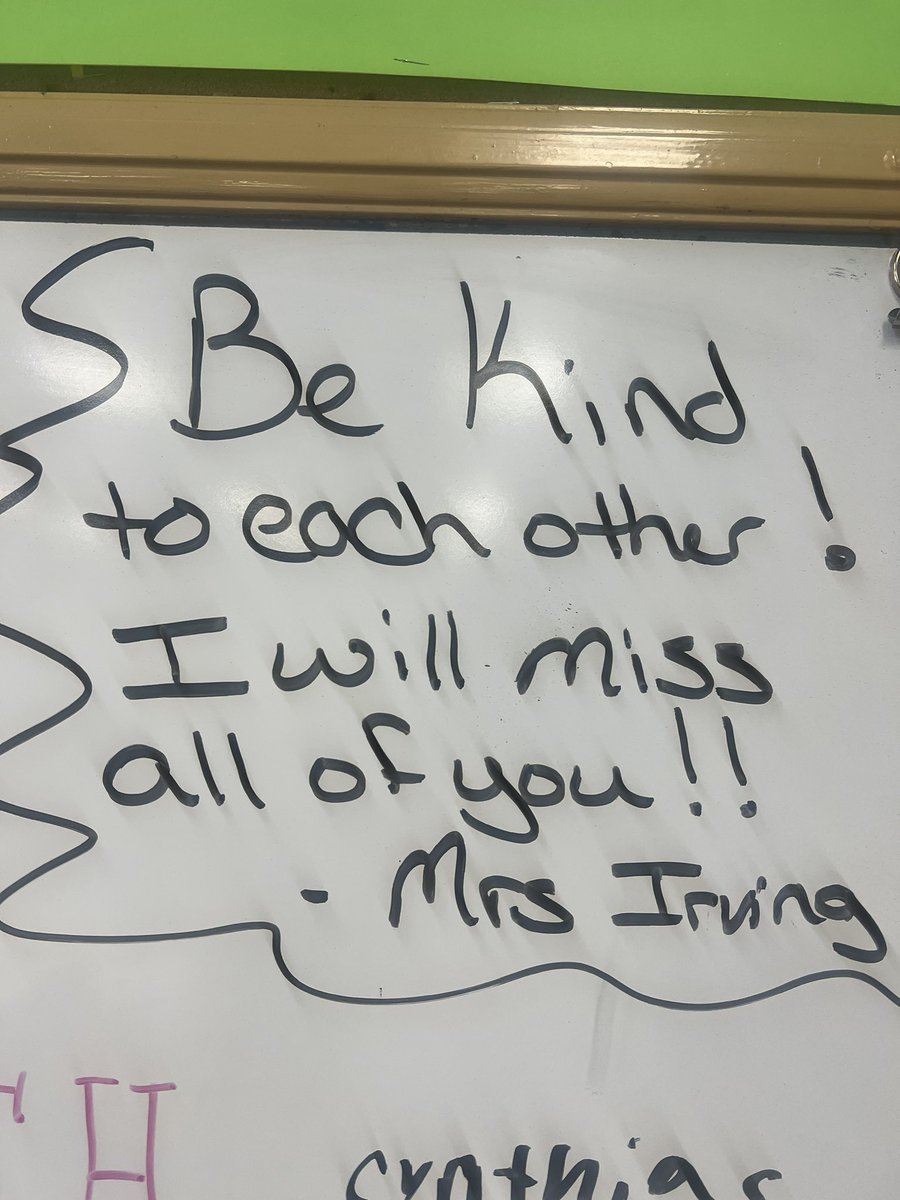 Be Kind
to each other!
I will miss
all of you!!
- Mrs Irving